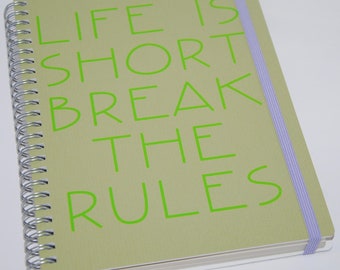 LIFE IS
SHORT
BREAK
THE
RULES